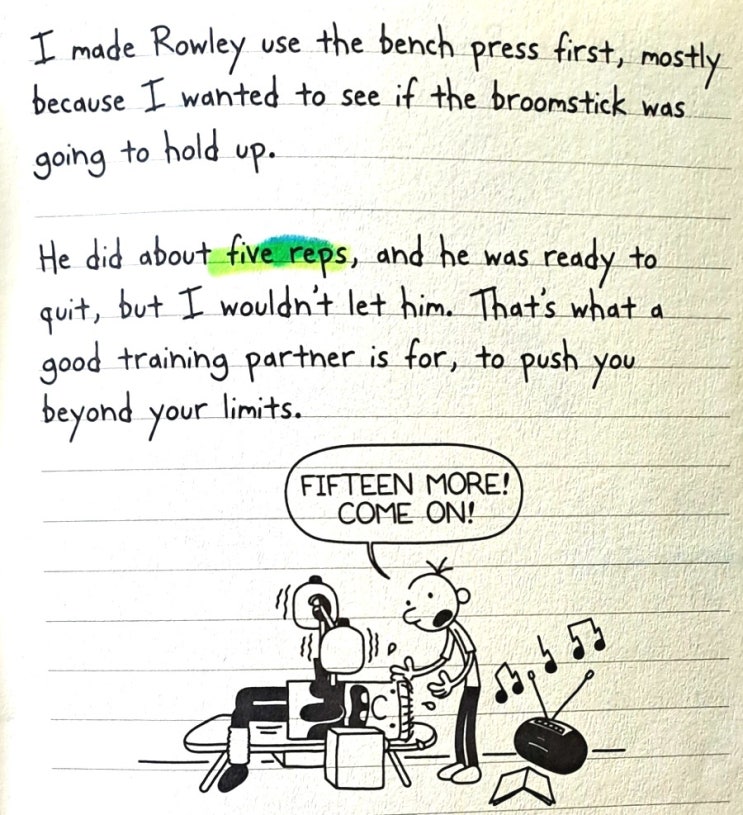 I made Rowley use the bench press first, mostly
because I wanted to see if the broomstick was
going to hold up.
He did about five reps, and he was ready to
quit, but I wouldn't let him. That's what a
good training partner is for, to push you
beyond your limits.
FIFTEEN MORE!
COME ON!